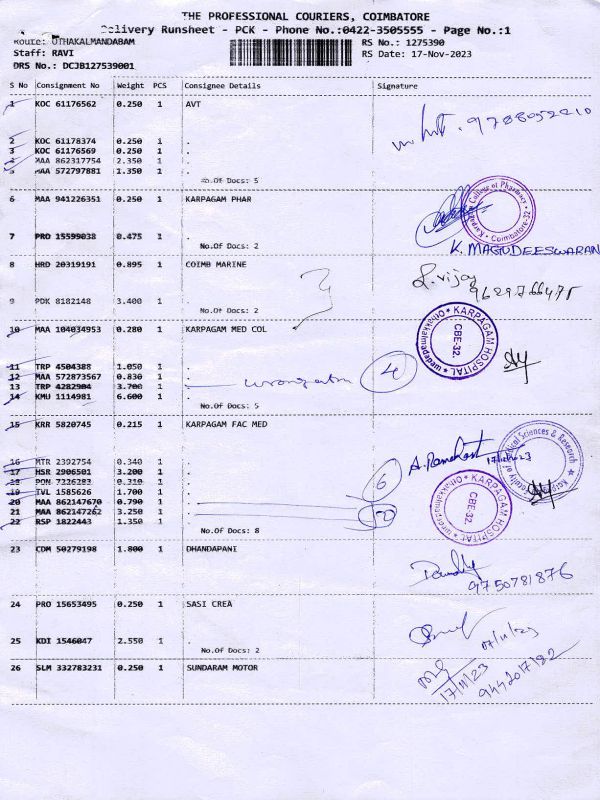 THE PROFESSIONAL COURIERS, COIMBATORE
Delivery Runsheet - PCK - Phone No.:0422-3505555 - Page No.:1
Route: OTHAKALMANDABAM
RS No.: 1275390
Staff: RAVI
RS Date: 17-Nov-2023
DRS No.: DCJB127539001
S No Consignment No Weight PCS Consignee Details Signature
1 KOC 61176562 0.250 1 AVT
9788052210
2 KOC 61178374 0.250 1 .
3 KOC 61176569 0.250 1 .
4 MAA 862317754 2.350 1 .
5 MAA 572797881 1.350 1 .
No.Of Docs: 5
6 MAA 941226351 0.250 1 KARPAGAM PHAR
College of Pharmacy Coimbatore-32
7 PRO 15599038 0.475 1 .
No.Of Docs: 2
K. MAGUDEESWARAN
8 HRD 20319191 0.895 1 COIMB MARINE
vijay
9629766475
9 PDK 8182148 3.400 1 .
No.Of Docs: 2
10 MAA 104034953 0.280 1 KARPAGAM MED COL
KARPAGAM HOSPITAL
CBE-32.
11 TRP 4504388 1.050 1 .
12 MAA 572873567 0.830 1 .
13 TRP 4282904 3.700 1 .
4
14 KMU 1114981 6.600 1 .
No.Of Docs: 5
15 KRR 5820745 0.215 1 KARPAGAM FAC MED
Medical Sciences & Research
16 MTR 2392754 0.340 1 .
17 HSR 2906501 3.200 1 .
6
18 PON 7226283 0.310 1 .
19 TVL 1585626 1.700 1 .
20 MAA 862147670 0.790 1 .
21 MAA 862147262 3.250 1 .
22 RSP 1822443 1.350 1 .
No.Of Docs: 8
KARPAGAM HOSPITAL
CBE-32.
23 CDM 50279198 1.800 1 DHANDAPANI
9750781876
24 PRO 15653495 0.250 1 SASI CREA
25 KDI 1546047 2.550 1 .
No.Of Docs: 2
26 SLM 332783231 0.250 1 SUNDARAM MOTOR
17/11/23